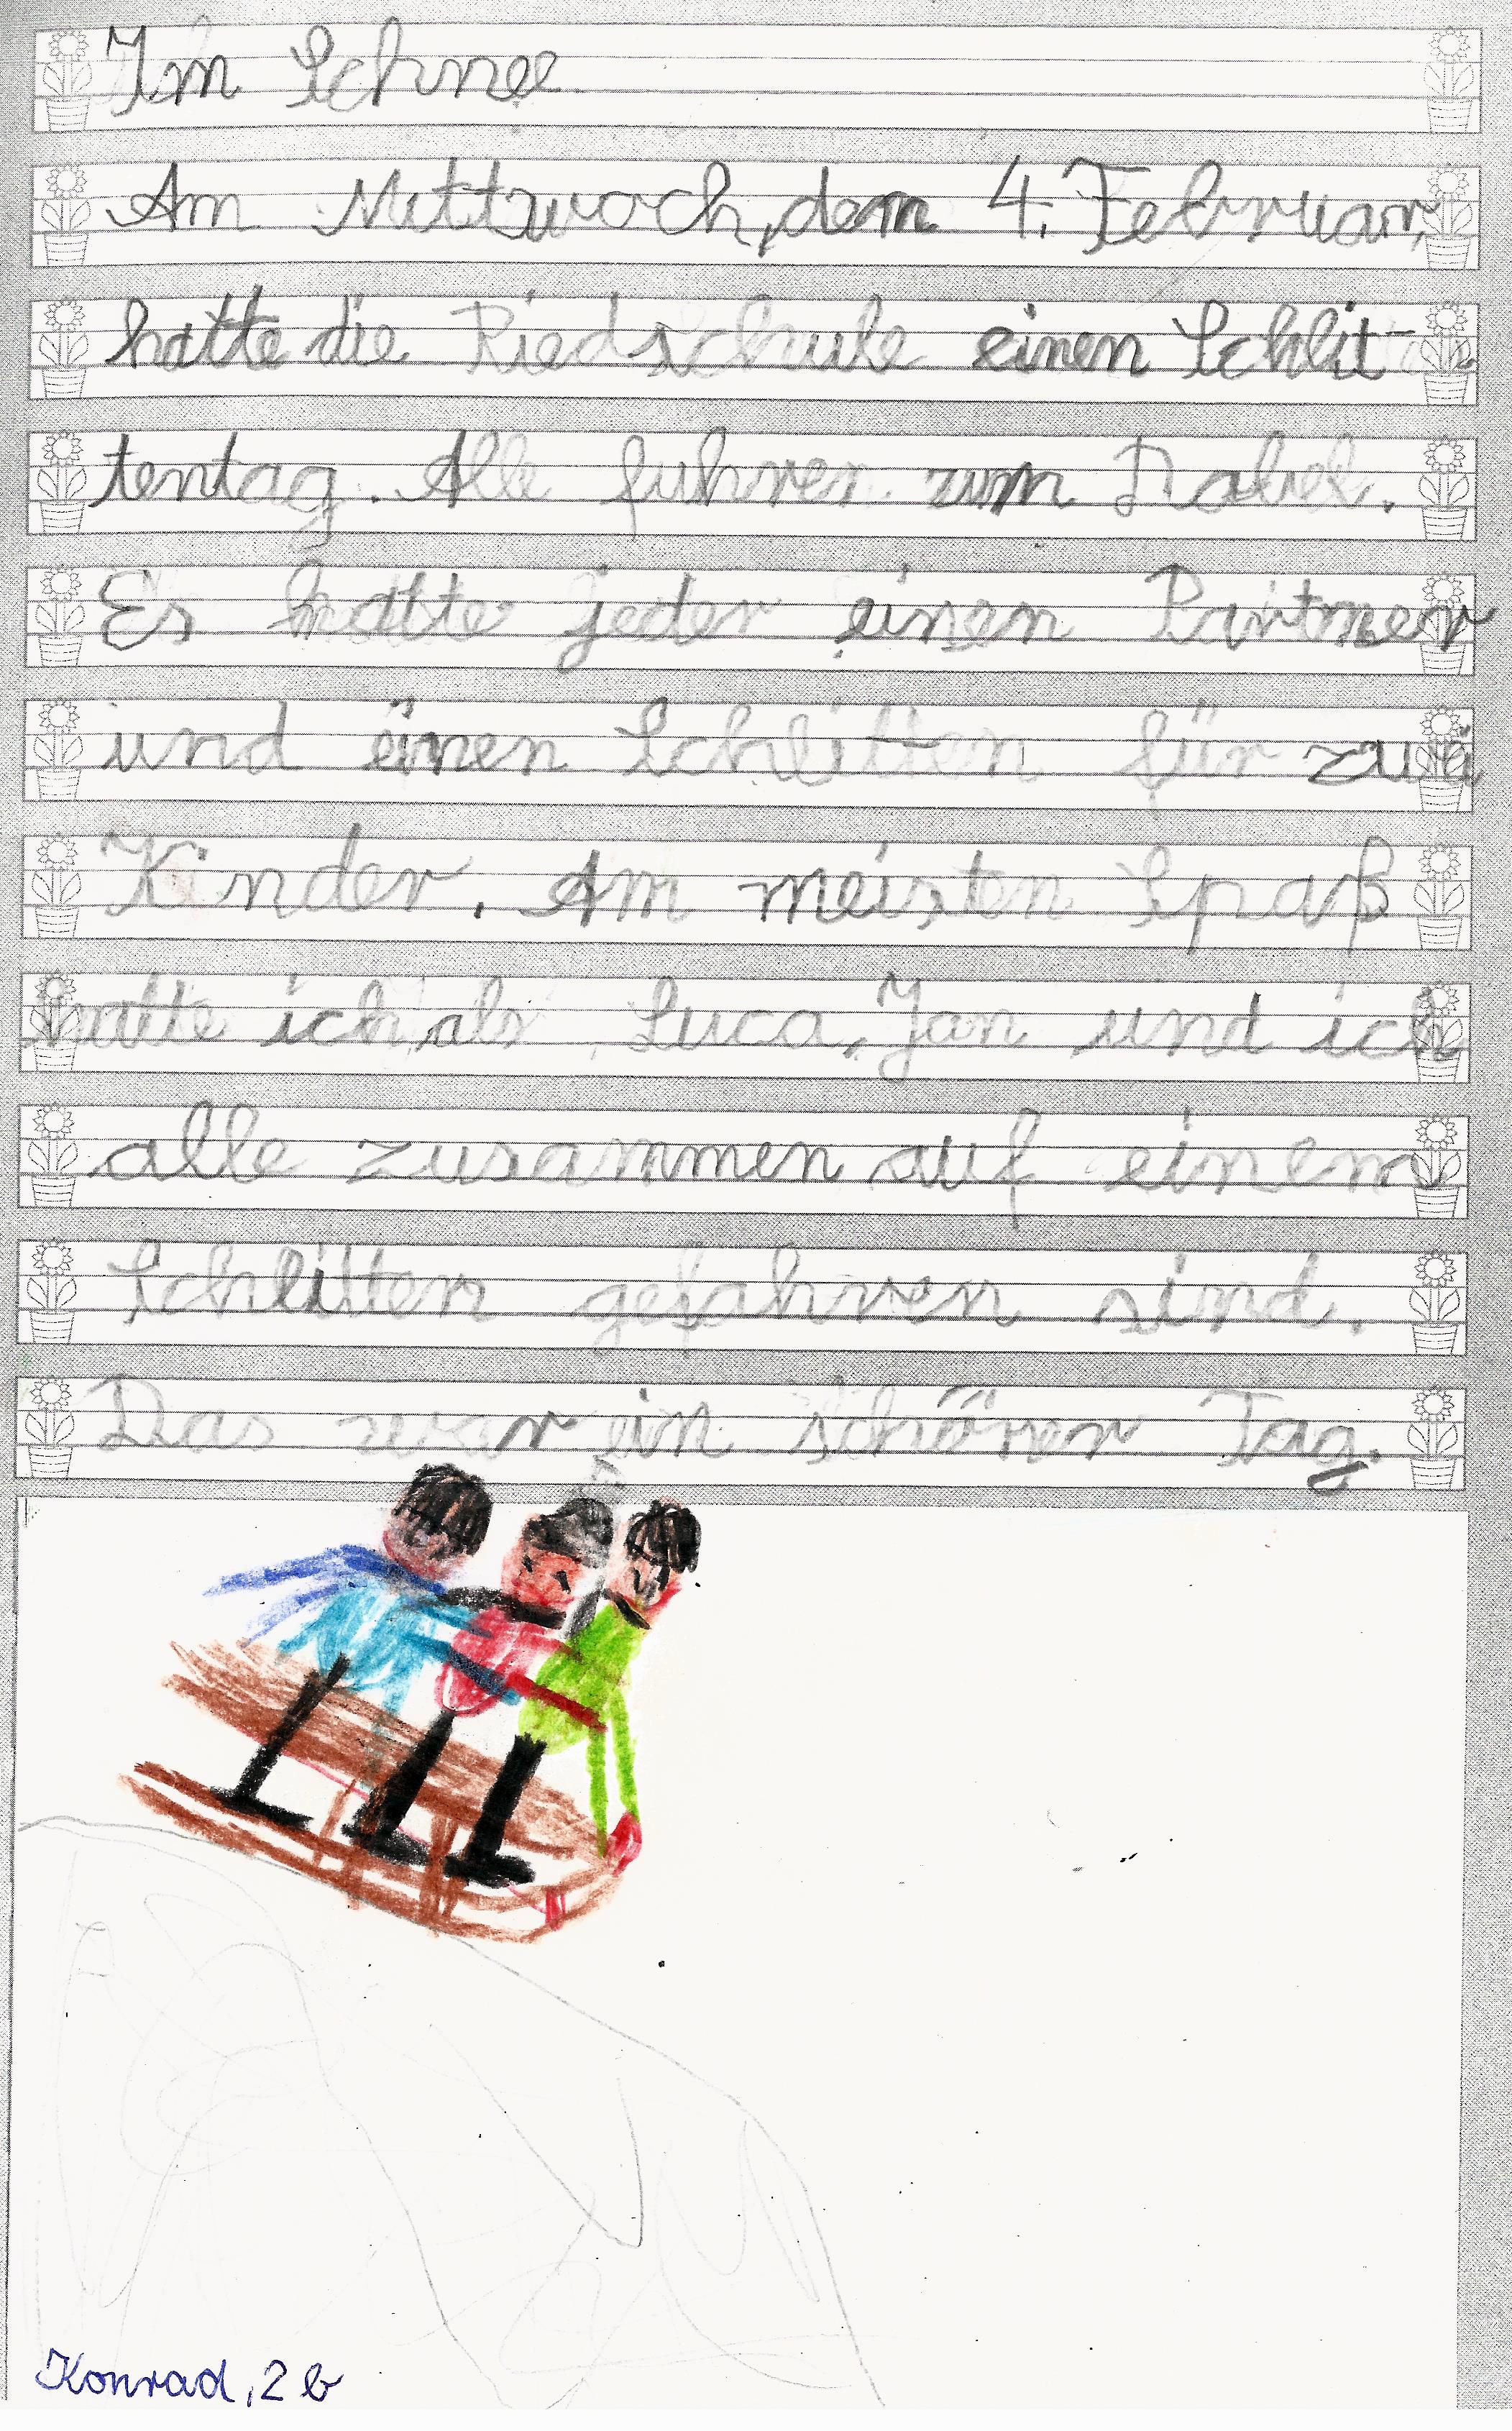 Im Schnee
Am Mittwoch, dem 4. Februar,
hatte die Riedschule einen Schlit-
tentag. Alle fuhren zum Nabel.
Es hatte jeder einen Partner
und einen Schlitten für zwei
Kinder. Am meisten Spaß
hatte ich, als Luca, Jan und ich
alle zusammen auf einem
Schlitten gefahren sind.
Das war ein schöner Tag.
Konrad, 2b